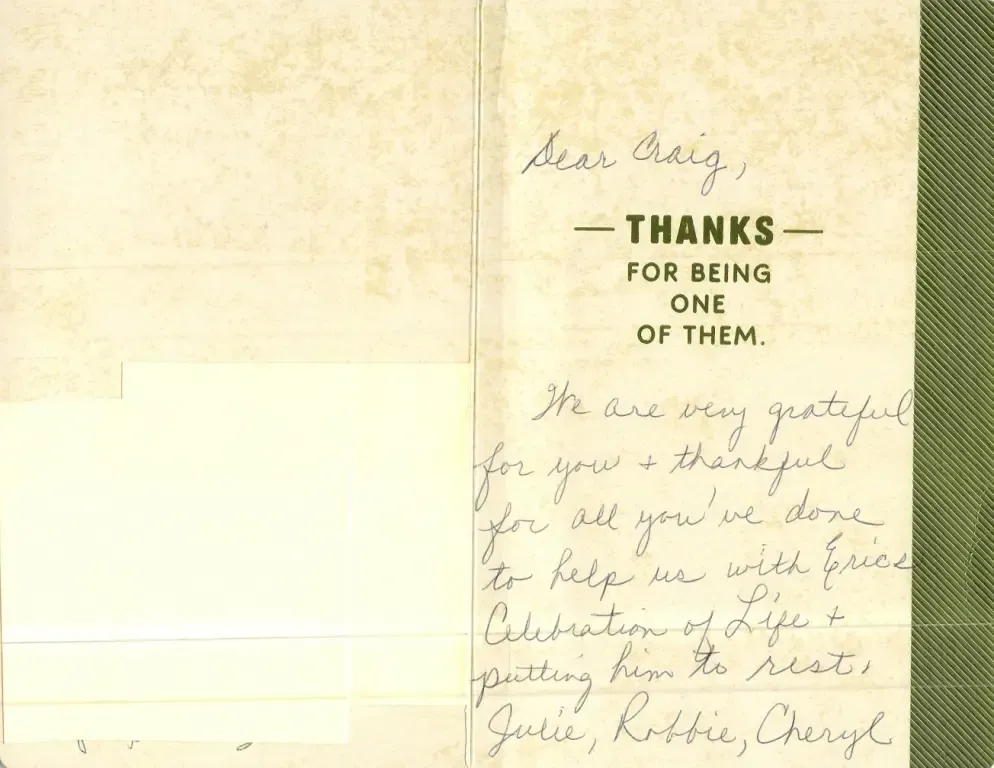 Dear Craig,
— THANKS —
FOR BEING
ONE
OF THEM.
We are very grateful
for you + thankful
for all you've done
to help us with Eric's
Celebration of Life +
putting him to rest.
Julie, Robbie, Cheryl